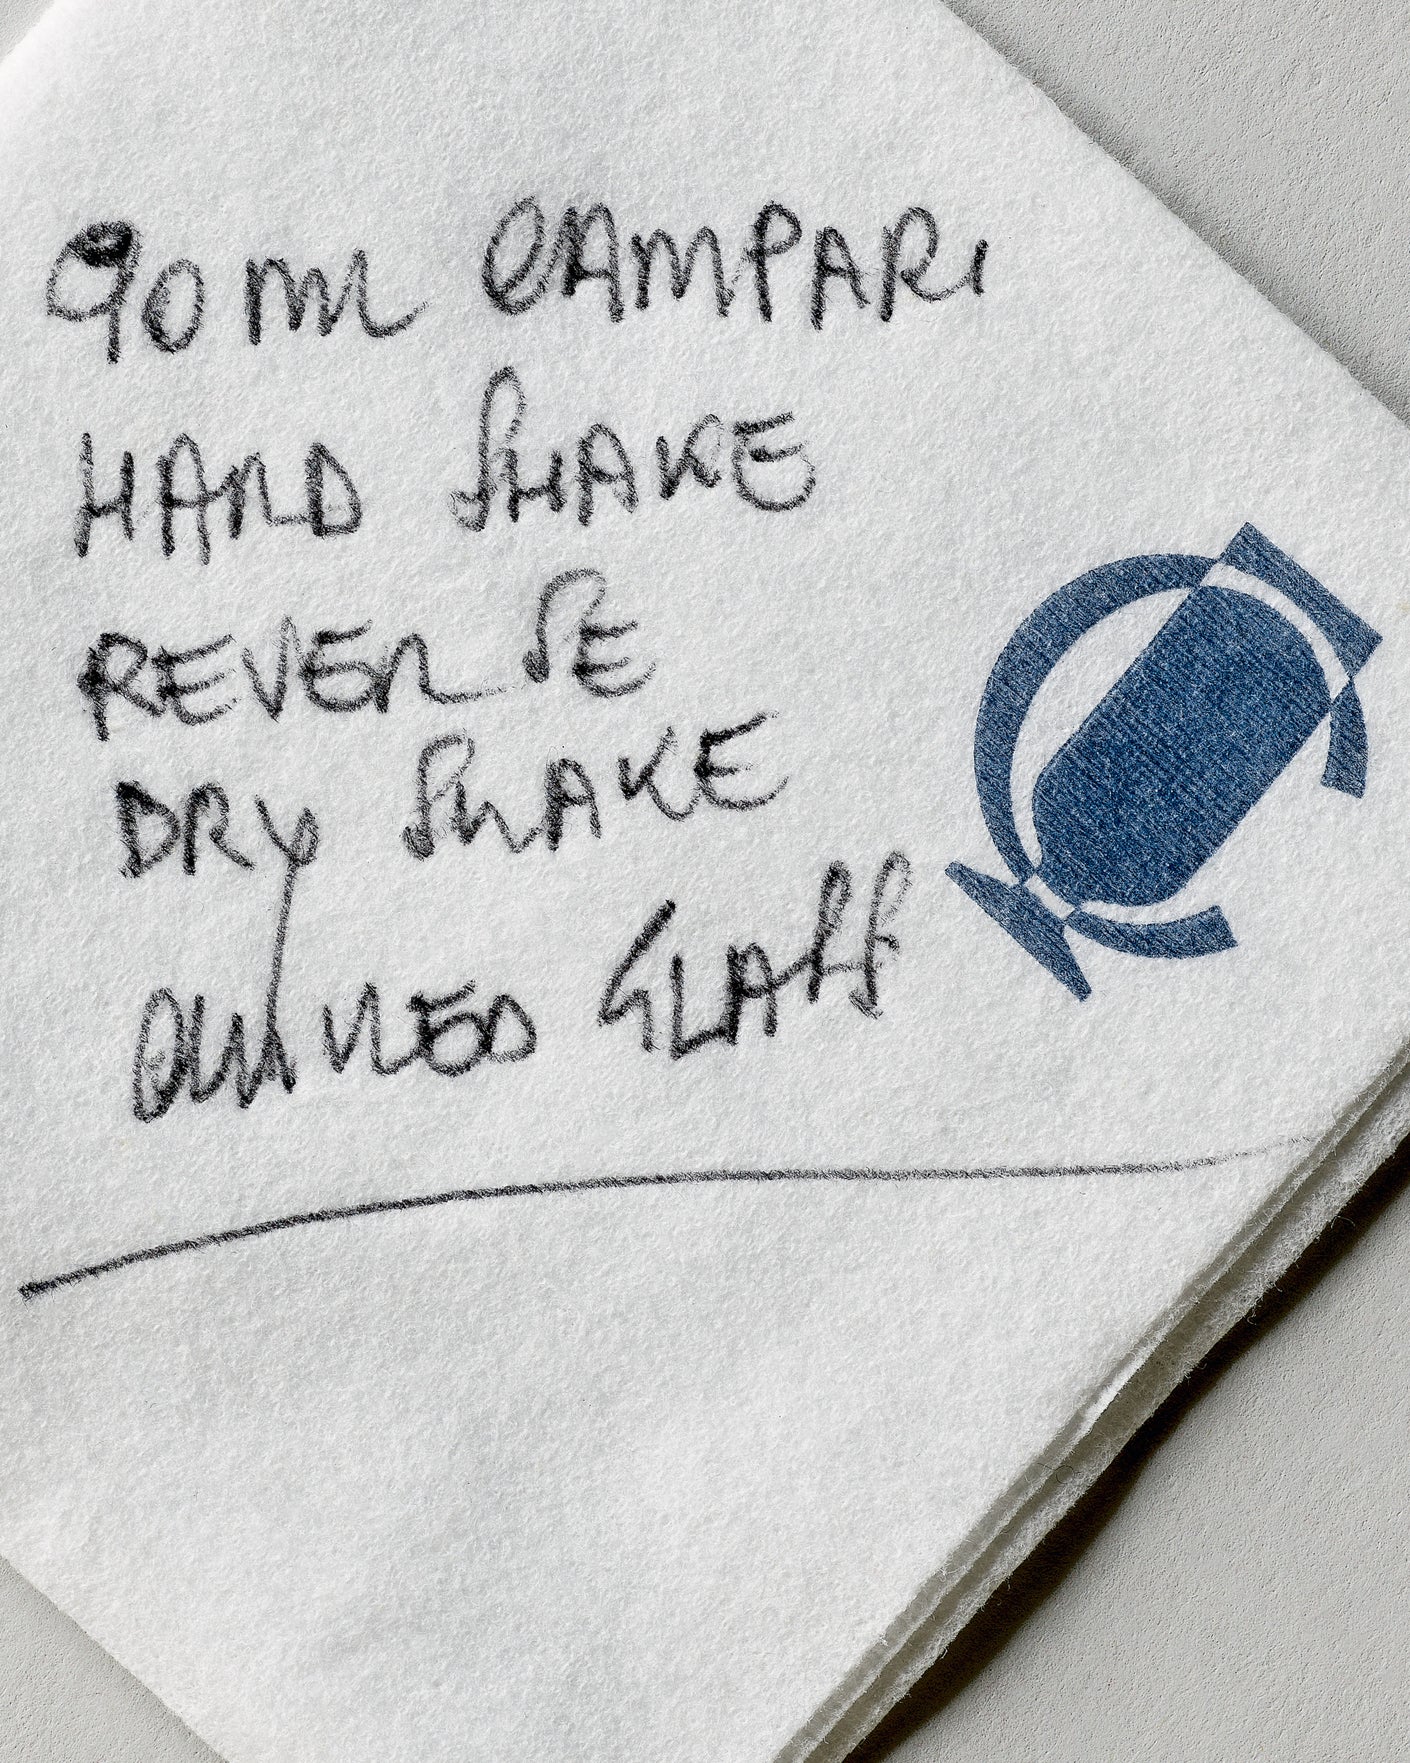 90 ml CAMPARI
HAND SHAKE
REVERSE
DRY SHAKE
GLASS